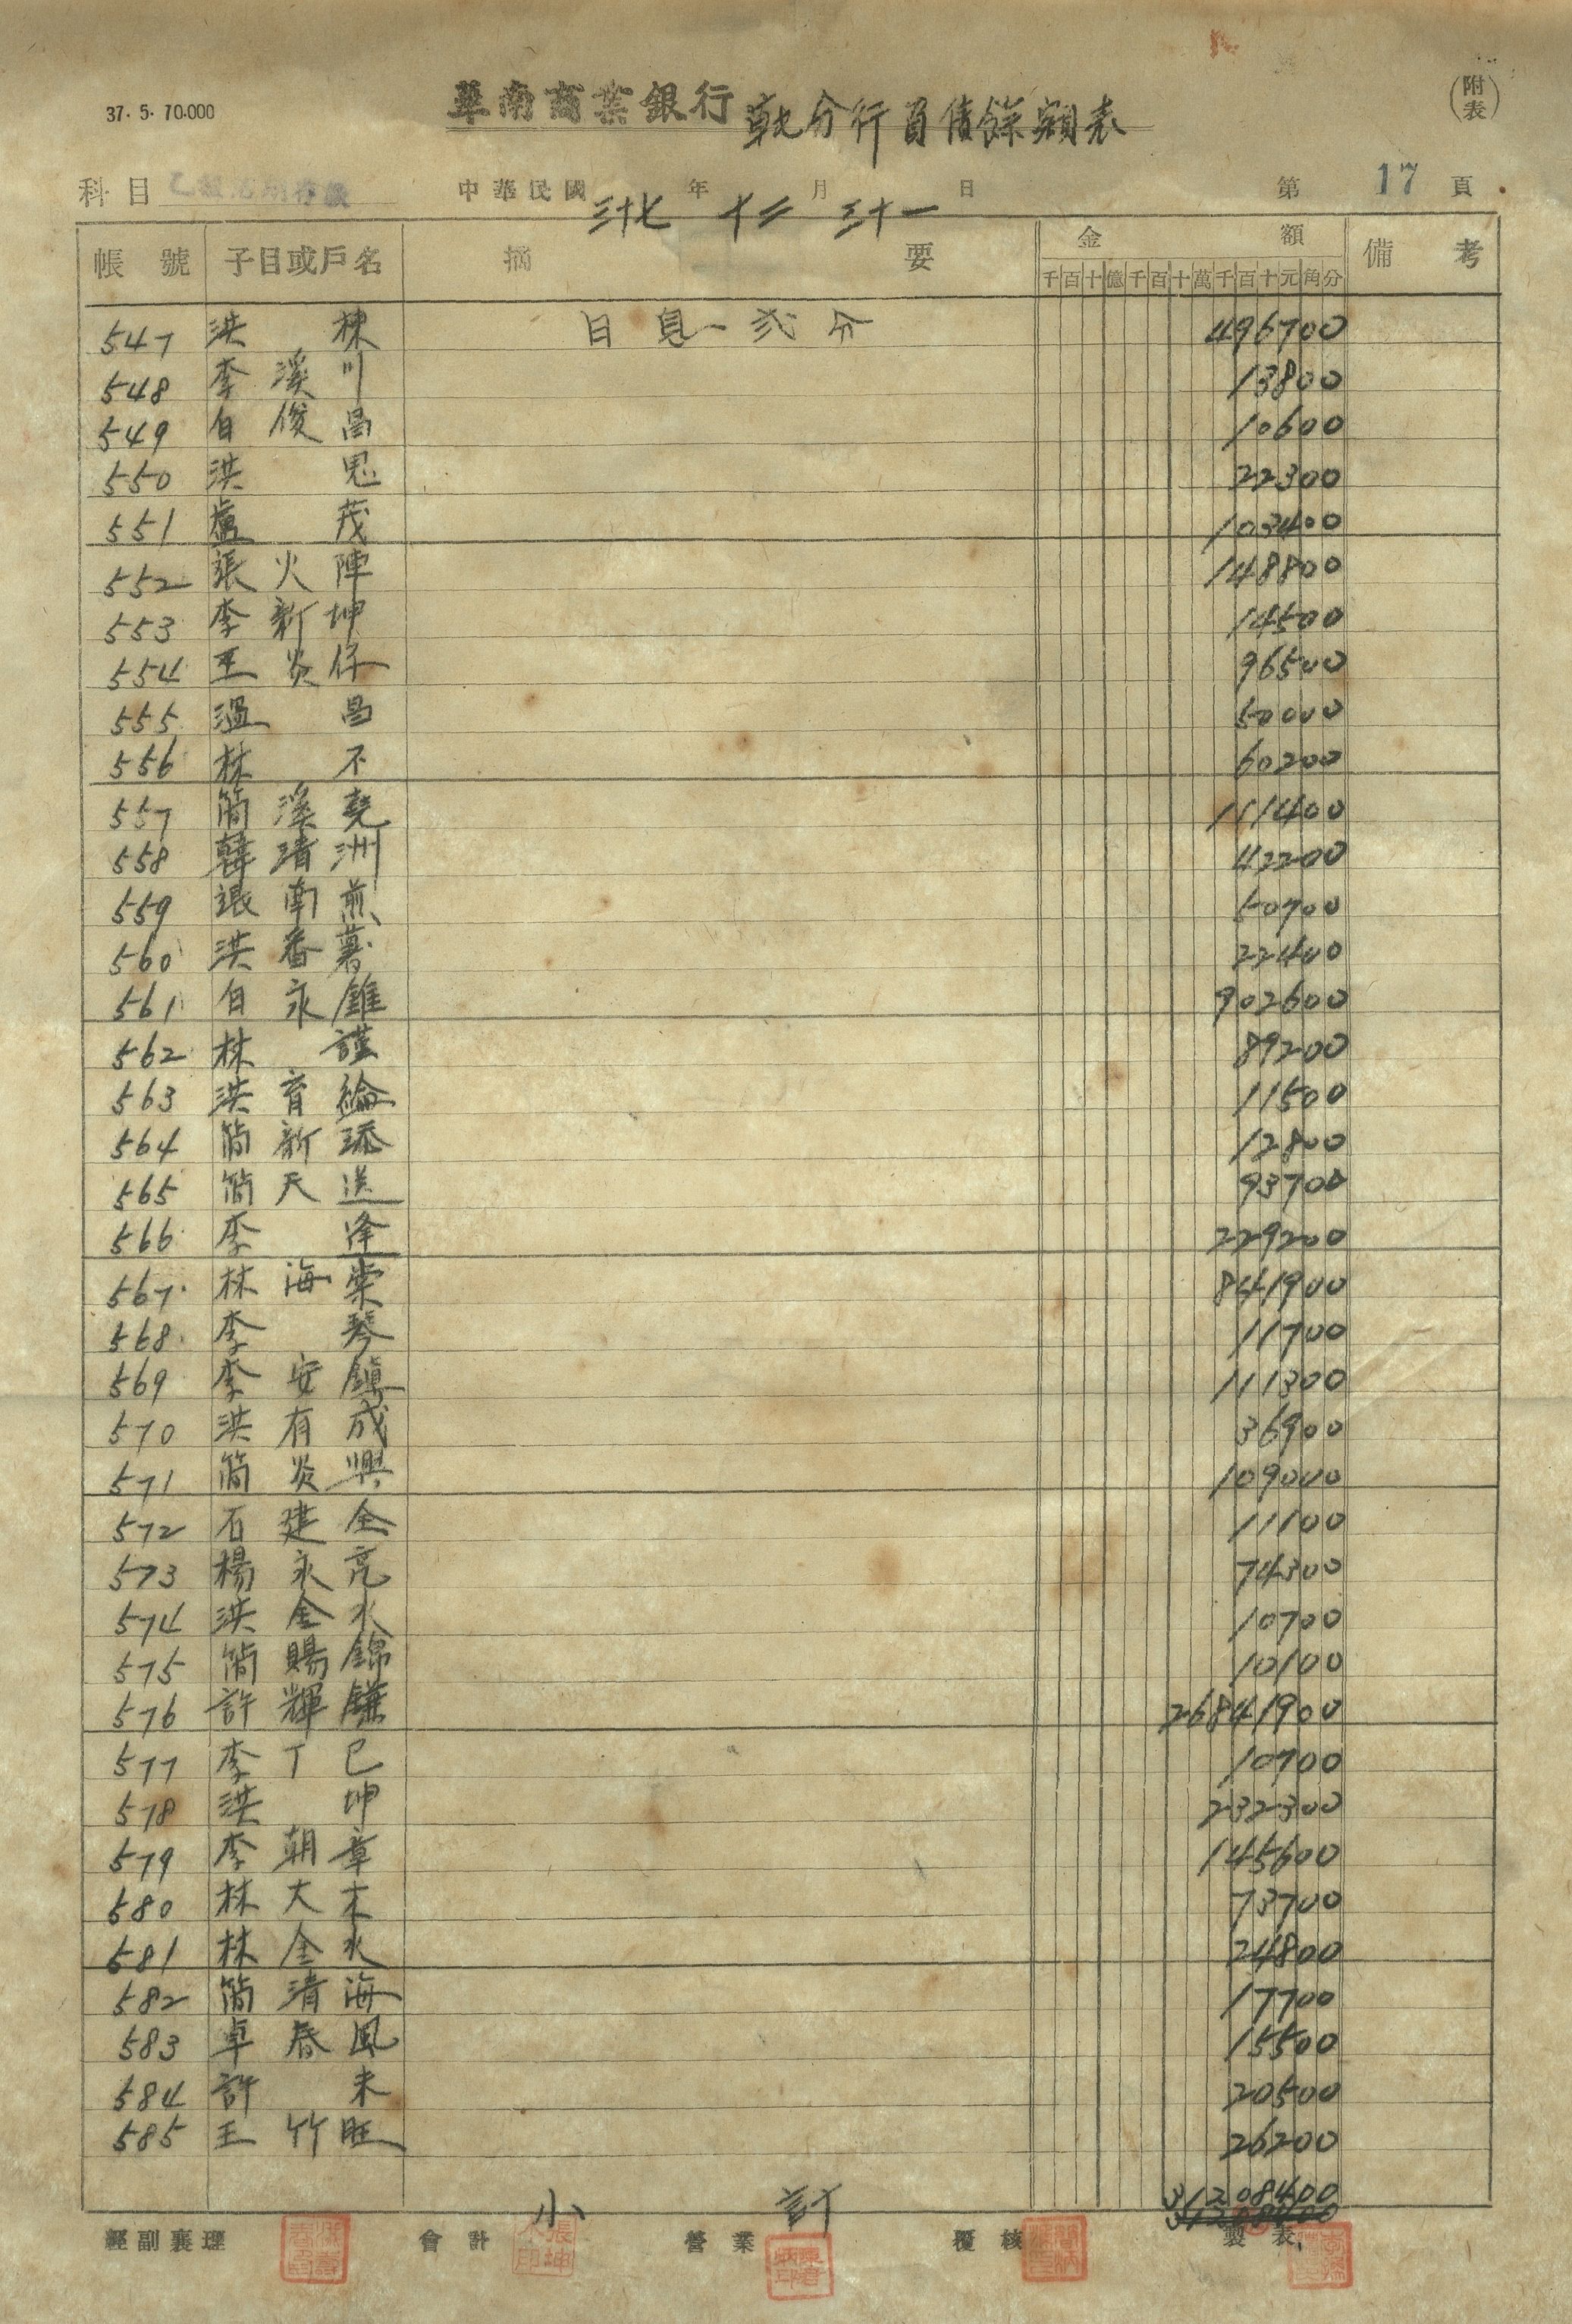 37. 5. 70.000
華南商業銀行 草屯分行負債餘額表
(附表)
科目 乙種活期存款 中華民國 三十七 年 十二 月 三十一 日 第 17 頁
帳號 子目或戶名 摘要 金額 備考
千百十億千百十萬千百十元角分
547 洪 棟 日息一弐分 496700
548 李溪川 13800
549 白俊昌 10600
550 洪 22300
551 盧 茂 103400
552 張火陣 148800
553 李新坤 14500
554 王炎仔 96500
555 溫 昌 50000
556 林 不 60200
557 簡溪堯 111400
558 韓清洲 42200
559 張南煎 50700
560 洪番薯 22400
561 白永錐 902600
562 林 謹 89200
563 洪育綸 11500
564 簡新 12800
565 簡天送 93700
566 李 逢 229200
567 林海棠 841900
568 李 琴 11700
569 李安鎮 111300
570 洪有成 36900
571 簡炎興 109000
572 石建全 11100
573 楊永亮 74300
574 洪金水 10700
575 簡賜錦 10100
576 許輝鎌 26841900
577 李丁巳 10700
578 洪 坤 232300
579 李朝章 145600
580 林大木 73700
581 林金水 24800
582 簡清海 17700
583 卓春風 15500
584 許 未 20500
585 王竹旺 26200
小計 31208400
31208400
經副襄理 會計 營業 覆核 製表